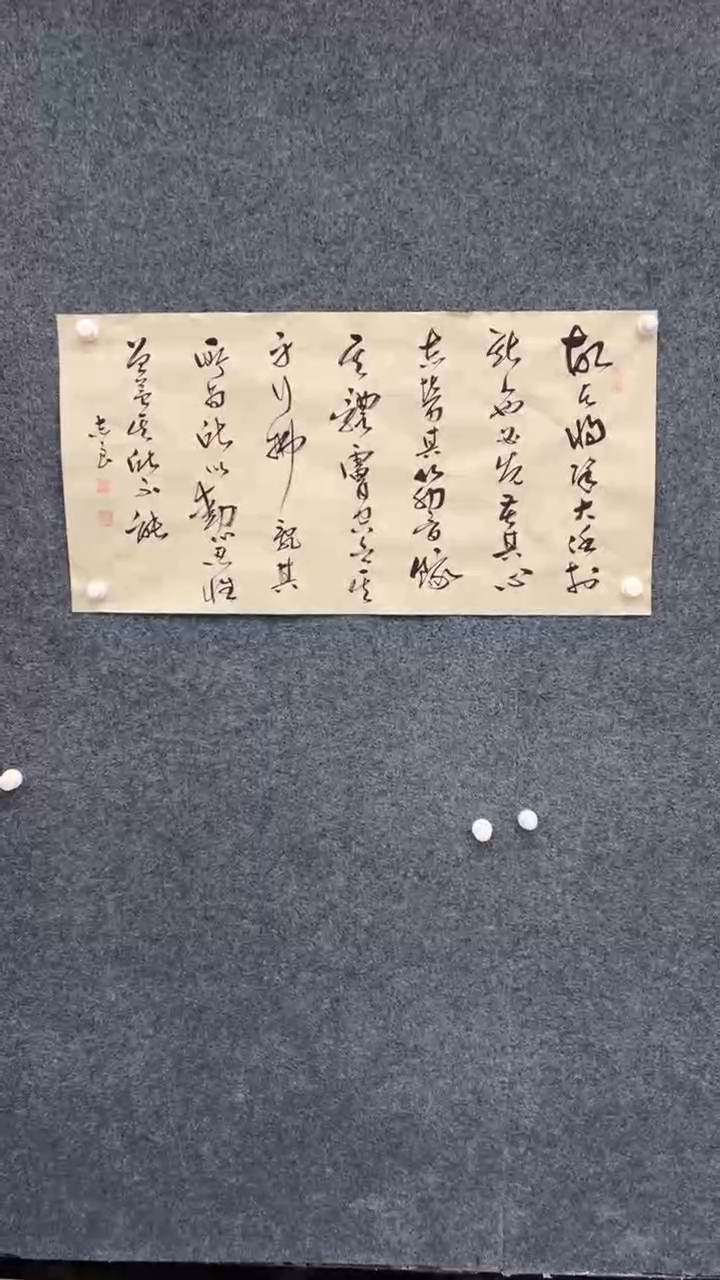 故天將降大任於
斯人也必先苦其心
志勞其筋骨餓
其體膚空乏其
身行拂亂其
所為所以動心忍性
曾益其所不能
志良